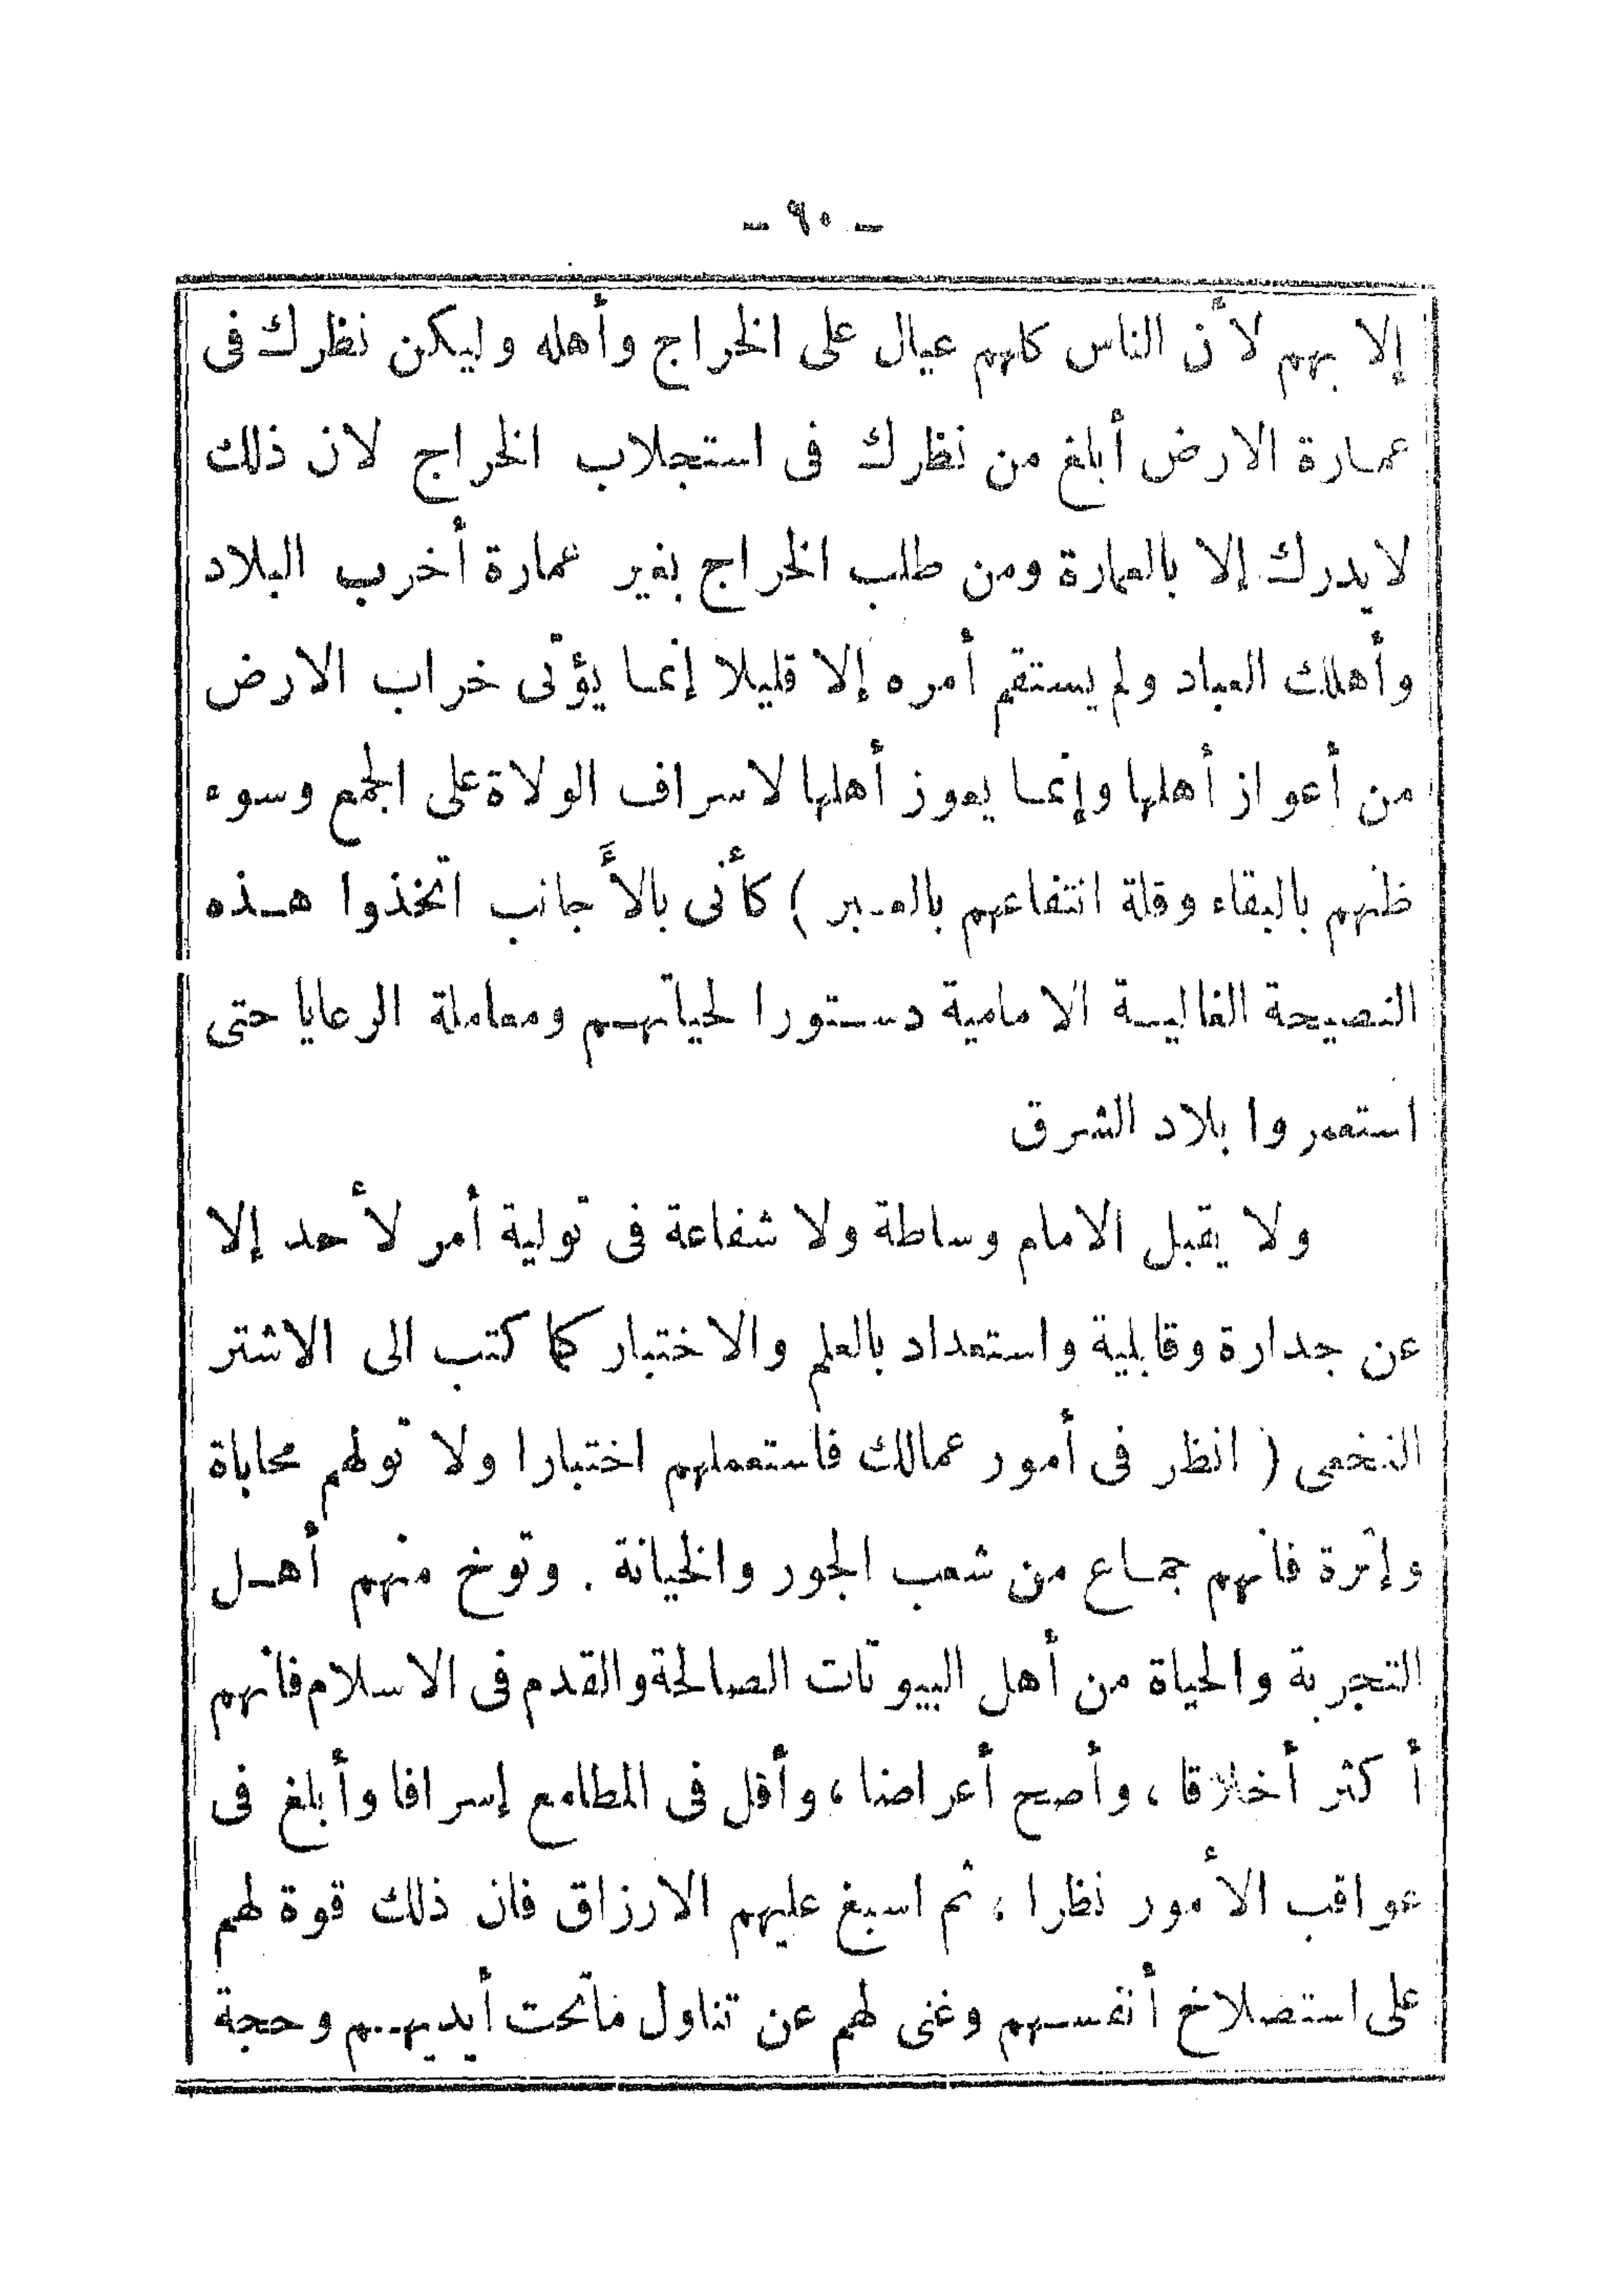 - ٩٠ -
إلا بهم لأن الناس كلهم عيال على الخراج وأهله وليكن نظرك فى
عمارة الارض أبلغ من نظرك فى استجلاب الخراج لان ذلك
لا يدرك إلا بالعمارة ومن طلب الخراج بغير عمارة أخرب البلاد
وأهلك العباد ولم يستقم أمره إلا قليلا إنما يؤتى خراب الارض
من أعواز أهلها وإنما يعوز أهلها لاسراف الولاة على الجمع وسوء
ظنهم بالبقاء وقلة انتفاعهم بالعبر ) كأنى بالأجانب اتخذوا هذه
النصيحة الغالية الامامية دستورا لحياتهم ومعاملة الرعايا حتى
استعمروا بلاد الشرق
ولا يقبل الامام وساطة ولا شفاعة فى تولية أمر لأحد إلا
عن جدارة وقابلية واستعداد بالعلم والاختبار كما كتب الى الاشتر
النخعى ( انظر فى أمور عمالك فاستعملهم اختبارا ولا تولهم محاباة
وإثرة فانهم جماع من شعب الجور والخيانة . وتوخ منهم أهل
التجربة والحياة من أهل البيوتات الصالحة والقدم فى الاسلام فانهم
أكثر أخلاقا ، وأصح أعراضا ، وأقل فى المطامع إسرافا وأبلغ فى
عواقب الأمور نظرا ، ثم اسبغ عليهم الارزاق فان ذلك قوة لهم
على استضلاخ أنفسهم وغنى لهم عن تناول ماتحت أيديهم وحجة